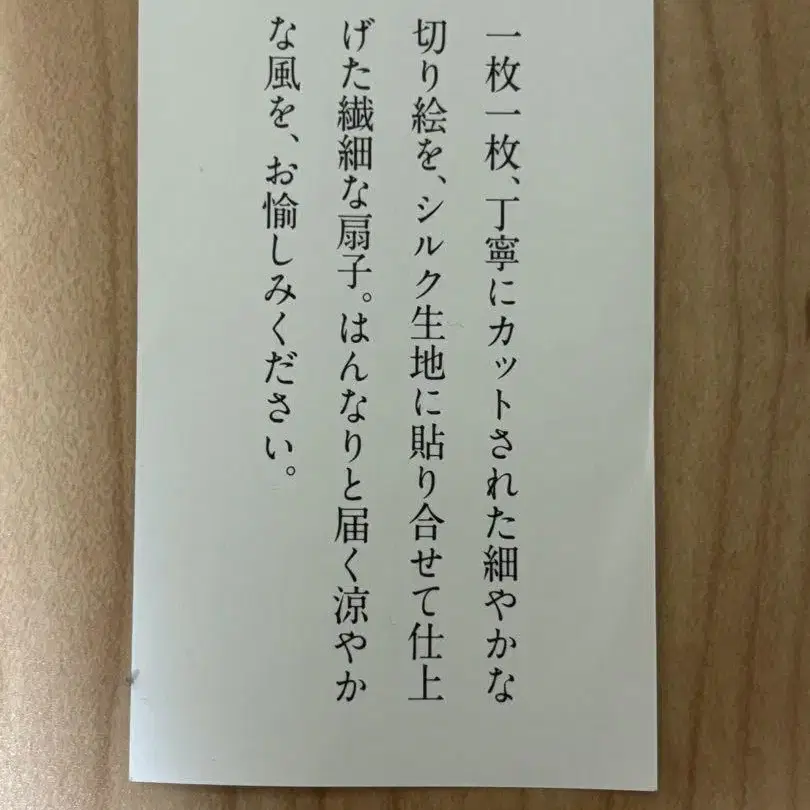 一枚一枚、丁寧にカットされた細やかな
切り絵を、シルク生地に貼り合せて仕上
げた繊細な扇子。はんなりと届く涼やか
な風を、お愉しみください。